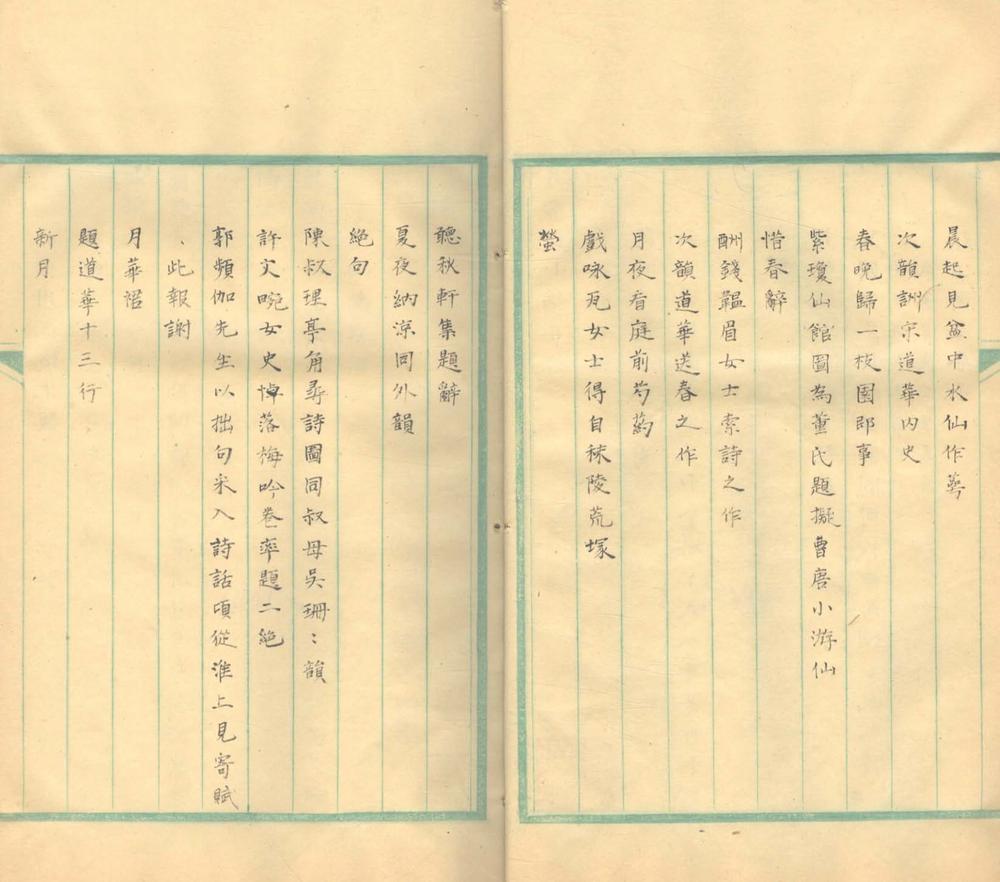 晨起見盆中水仙作萼
次韻訓宋道華內史
春晚歸一枝園即事
紫瓊仙館圖為董氏題擬曹唐小游仙
惜春辭
酬錢韞眉女士索詩之作
次韻道華送春之作
月夜看庭前芍藥
戲咏瓦女士得自秣陵荒塚
螢
聽秋軒集題辭
夏夜納涼同外韻
絕句
陳叔理亭角尋詩圖同叔母吳珊：韻
許宍畹女史悼落梅吟卷率題二絕
郭頻伽先生以拙句采入詩話頃從淮上見寄賦
、此報謝
月華謡
題道華十三行
新月